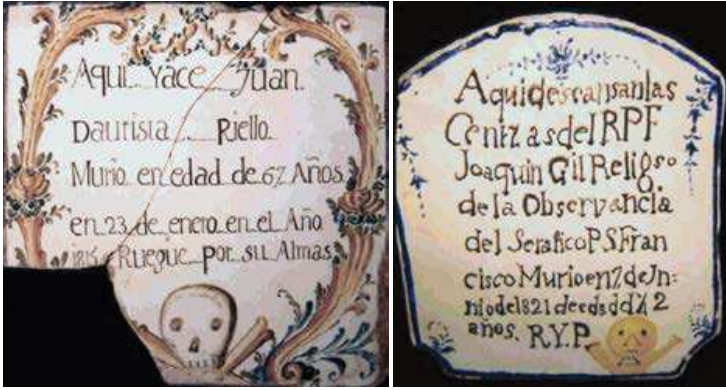 Aqui Yace Juan.
Daurisia Riello.
Murio en edad de 67 Años
en 23 de enero en el Año
1815 Ruegue por su Almas
Aqui descansan las
Cenizas del RPF
Joaquin Gil Religso
de la Observancia
del Serafico P S Fran
cisco Murio en 7 de Jn=
nio del 821 de eds dd 42
años. R.Y.P.